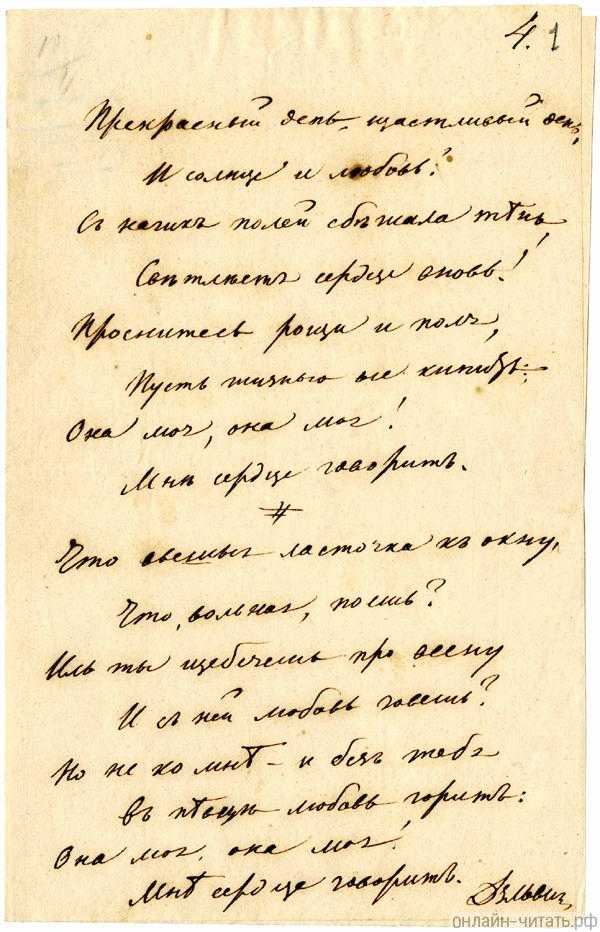 4. 1
Прекрасный день, щастливый день,
И солнце и любовь!
Съ нагихъ полей сбѣжала тѣнь
Свѣтлѣетъ сердце вновь!
Проснитесь рощи и поля,
Пусть жизнью все кипитъ:
Она моя, она моя!
Мнѣ сердце говоритъ.
Что вьешься ласточка къ окну,
Что, вольная, поешь?
Иль ты щебечешь про весну
И съ ней любовь зовешь?
Но не ко мнѣ – и безъ тебя
Въ пѣвцѣ любовь горитъ:
Она моя, она моя!
Мнѣ сердце говоритъ.
Дельвигъ
онлайн-читать.рф